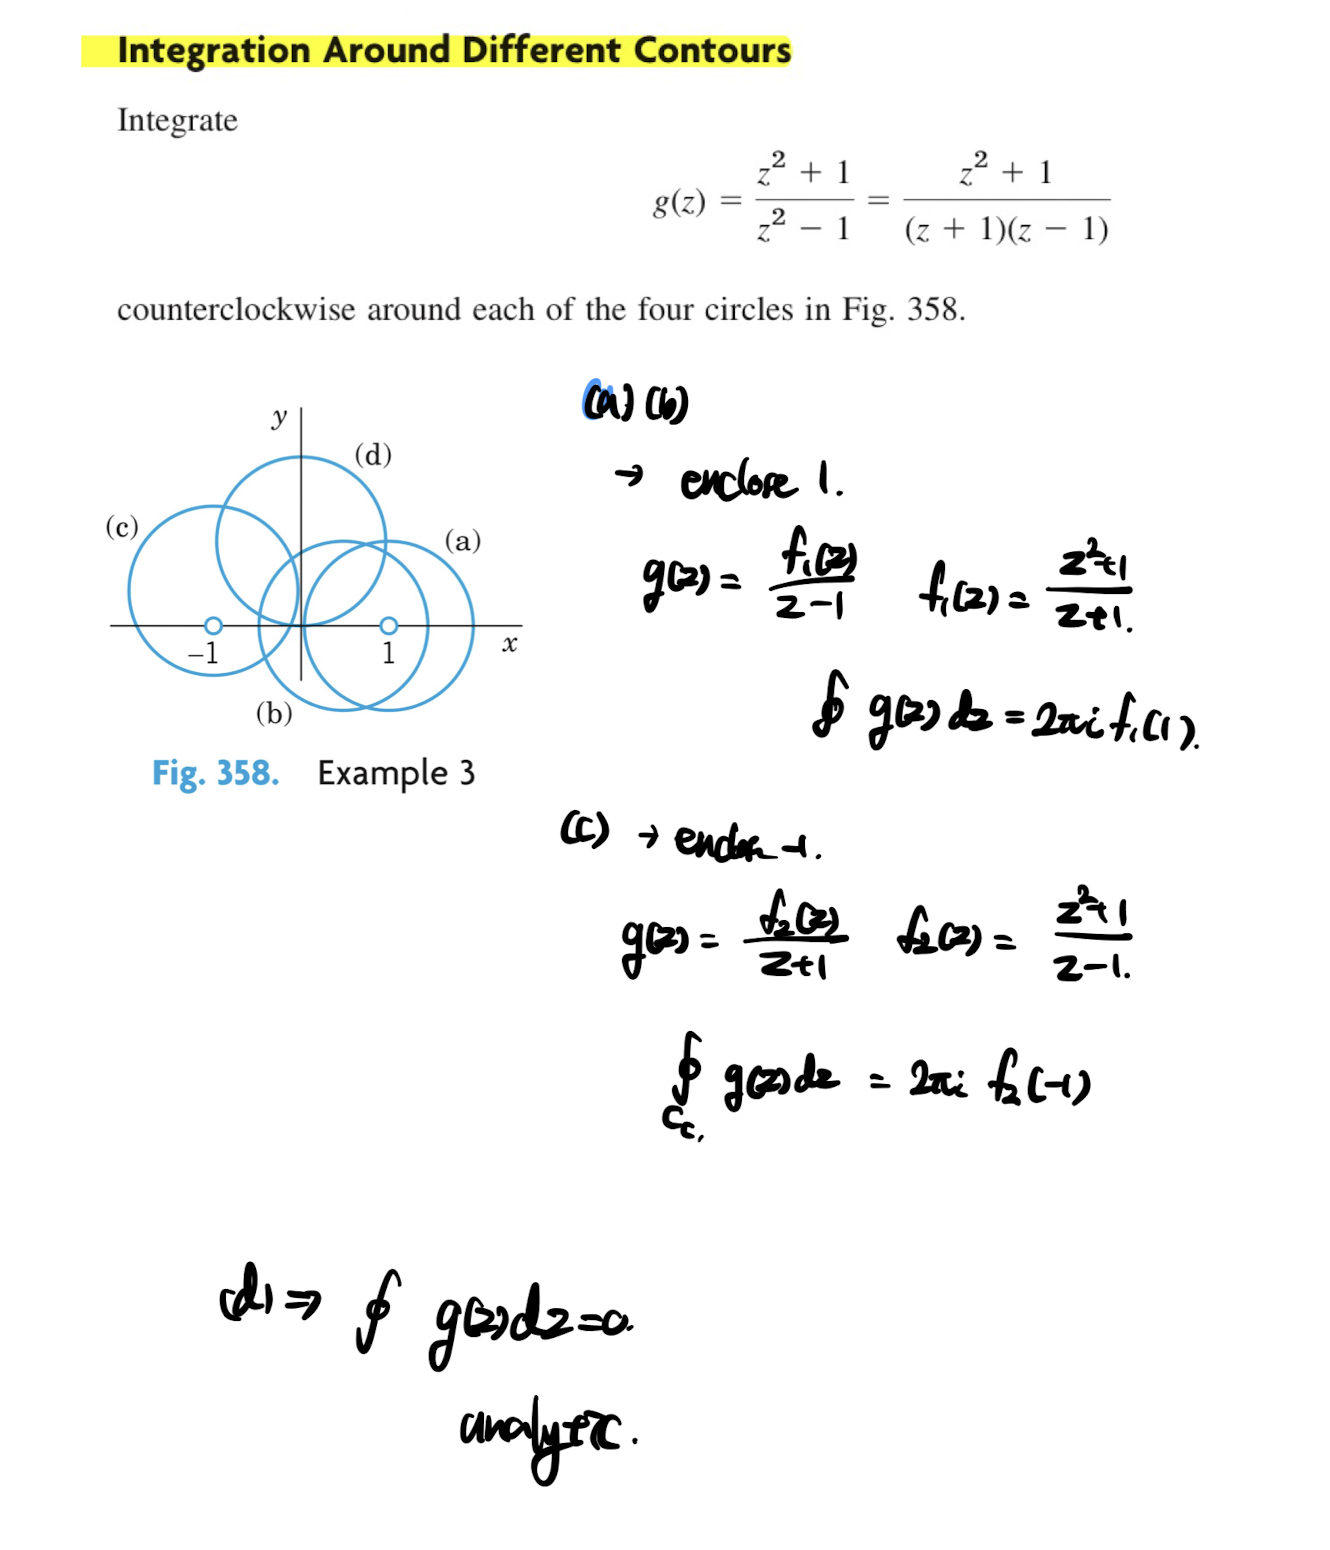 Integration Around Different Contours
Integrate
g(z) = \frac{z^2 + 1}{z^2 - 1} = \frac{z^2 + 1}{(z + 1)(z - 1)}
counterclockwise around each of the four circles in Fig. 358.
(a) (b)
y
(d)
→ enclose 1.
(c)
(a)
g(z) = \frac{f_1(z)}{z-1} f_1(z) = \frac{z^2+1}{z+1}.
−1
1
x
(b)
∮ g(z) dz = 2πi f_1(1).
Fig. 358. Example 3
(c) → enclose -1.
g(z) = \frac{f_2(z)}{z+1} f_2(z) = \frac{z^2+1}{z-1}.
∮_{C_c}. g(z)dz = 2πi f_2(-1)
(d) ⇒ ∮ g(z)dz=0.
analytic.